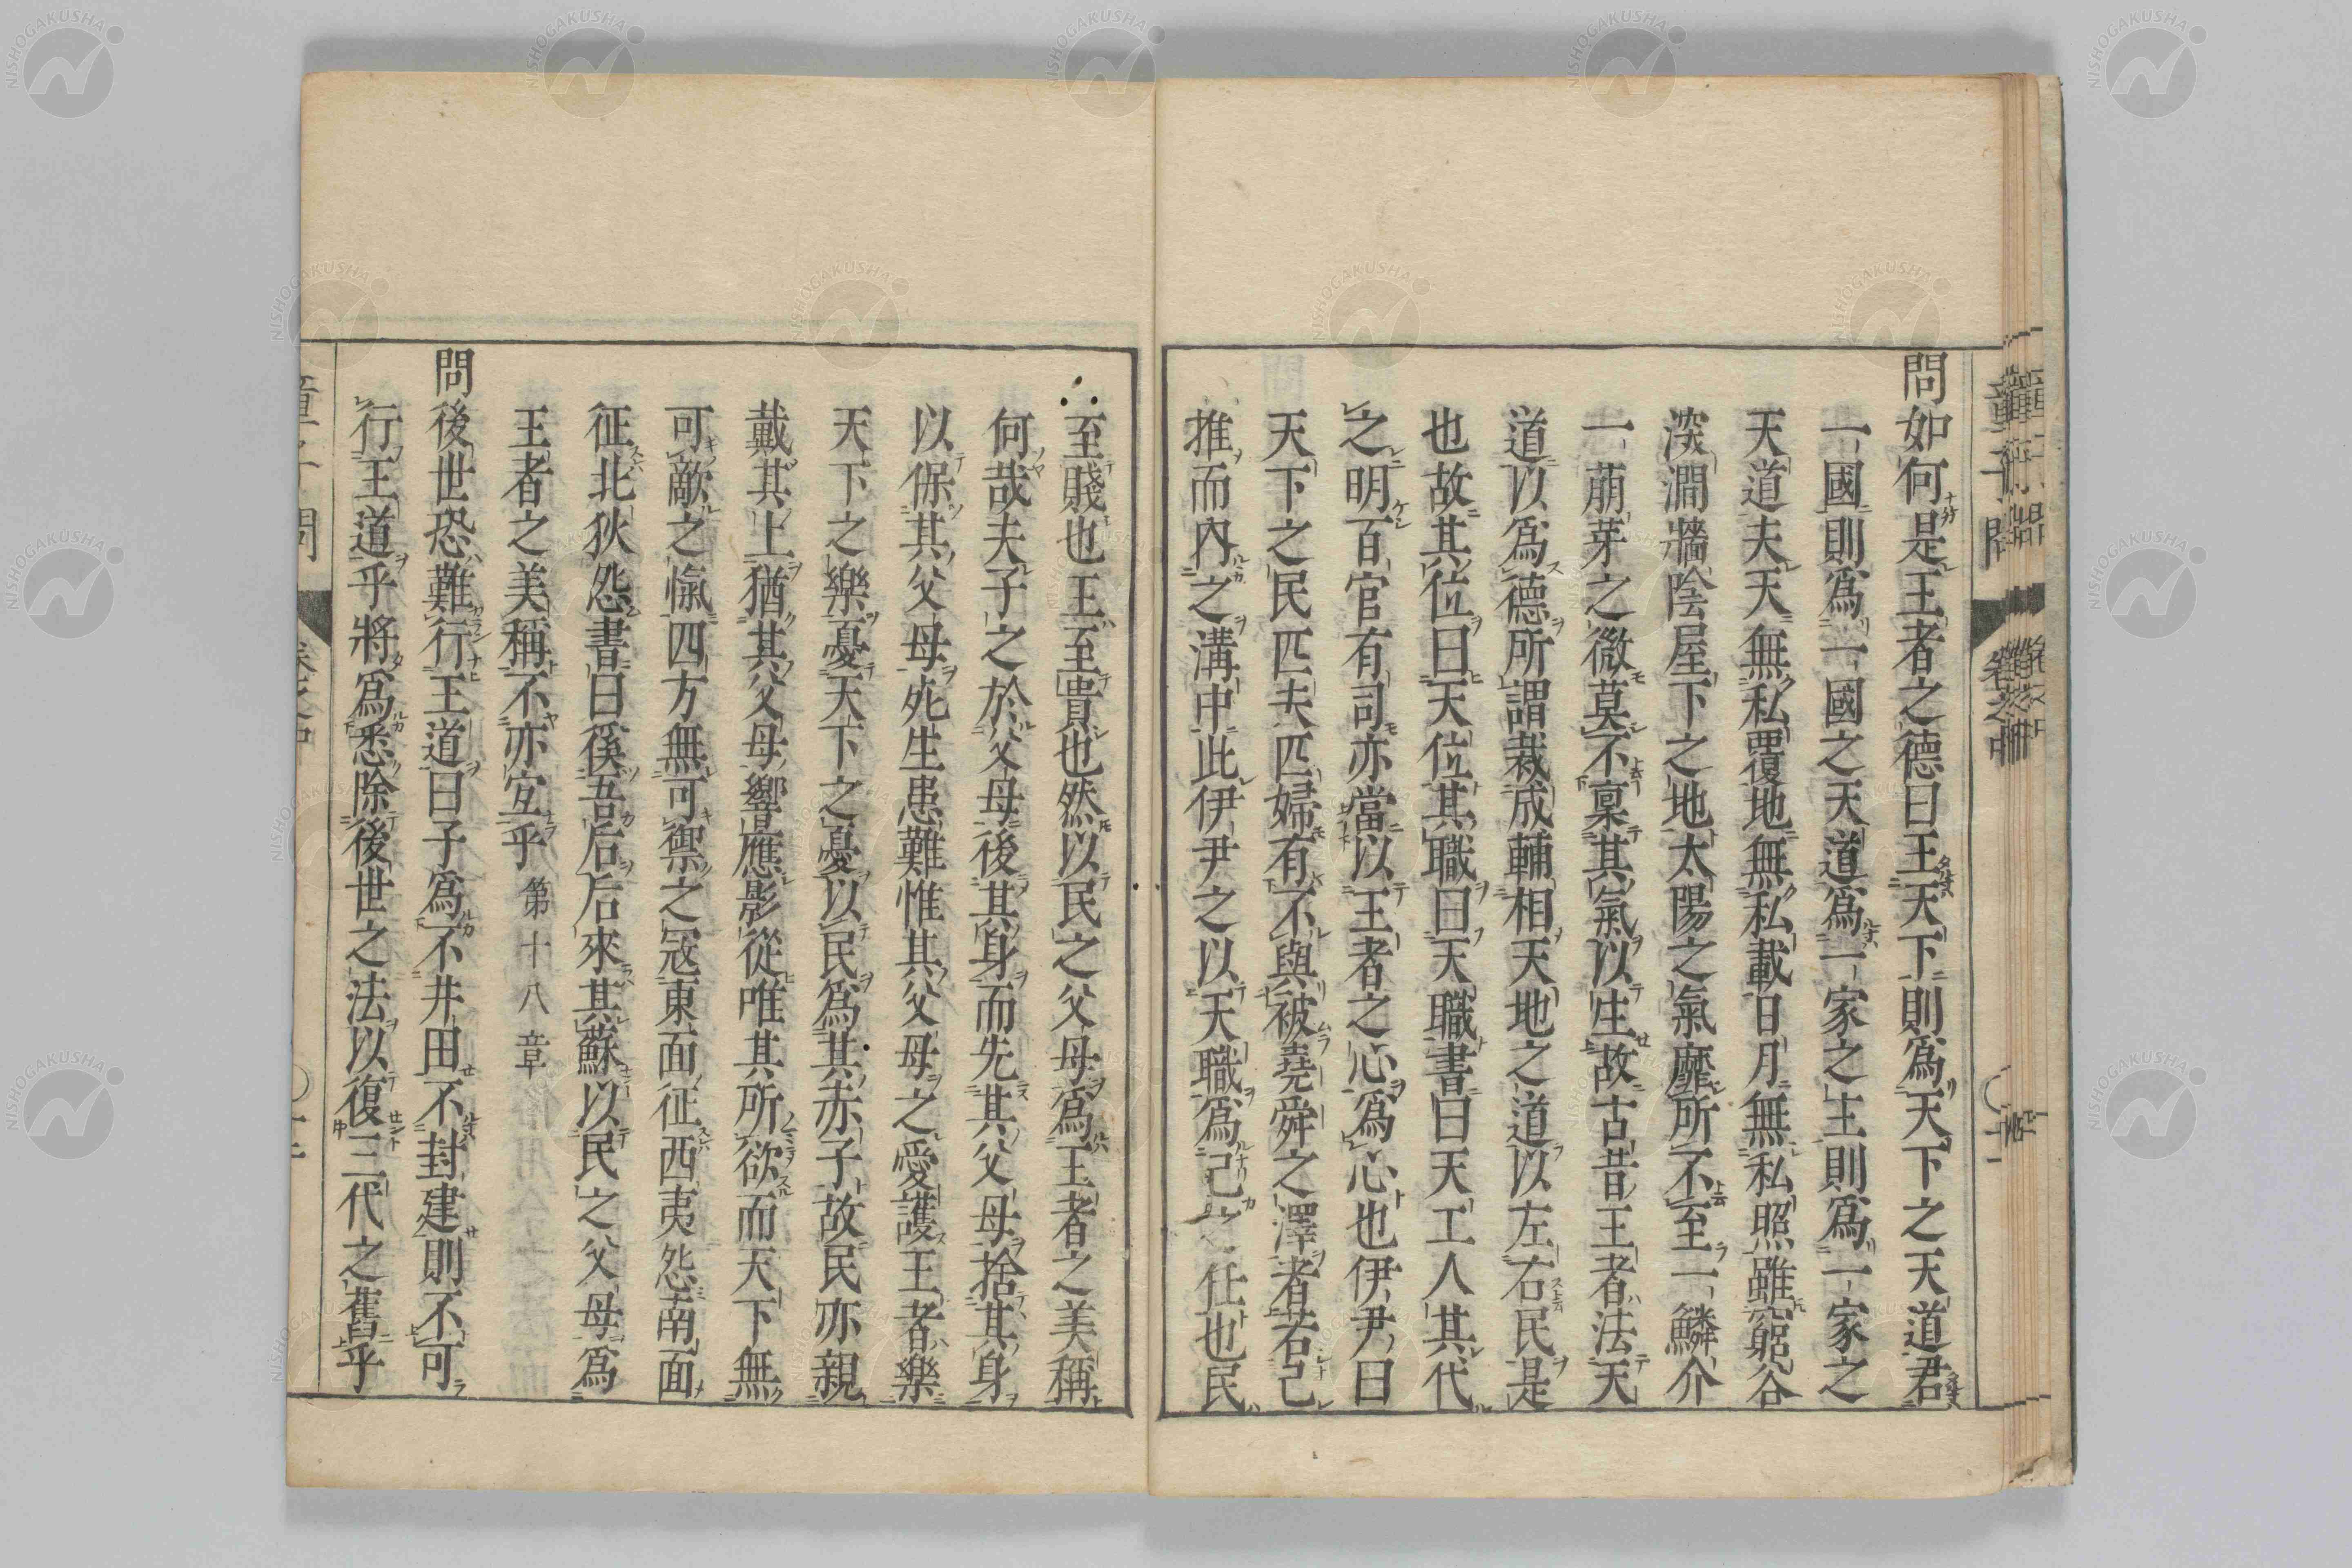 問如何是王者之德曰王天下則爲天下之天道君
一國則爲一國之天道爲一家之主則爲一家之
天道夫天無私覆地無私載日月無私照雖窮谷
深澗牆陰屋下之地太陽之氣靡所不至一鱗介
一萠芽之微莫不稟其氣以生故古昔王者法天
道以爲德所謂裁成輔相天地之道以左右民是
也故其位曰天位其職曰天職書曰天工人其代
之明百官有司亦當以王者之心爲心也伊尹曰
天下之民匹夫匹婦有不與被堯舜之澤者若己
推而內之溝中此伊尹之以天職爲己任也民
至賤也王至貴也然以民之父母爲王者之美稱
何哉夫子之於父母後其身而先其父母捨其身
以保其父母死生患難惟其父母之愛護王者樂
天下之樂憂天下之憂以民爲其赤子故民亦親
戴其上猶其父母響應影從唯其所欲而天下無
可敵之愾四方無可禦之寇東面征西夷怨南面
征北狄怨書曰徯吾后后來其蘇以民之父母爲
王者之美稱不亦宜乎 第十八章
問後世恐難行王道曰子爲不井田不封建則不可
行王道乎將爲悉除後世之法以復三代之舊乎
童子問
卷之中
NISHOGAKUSHA